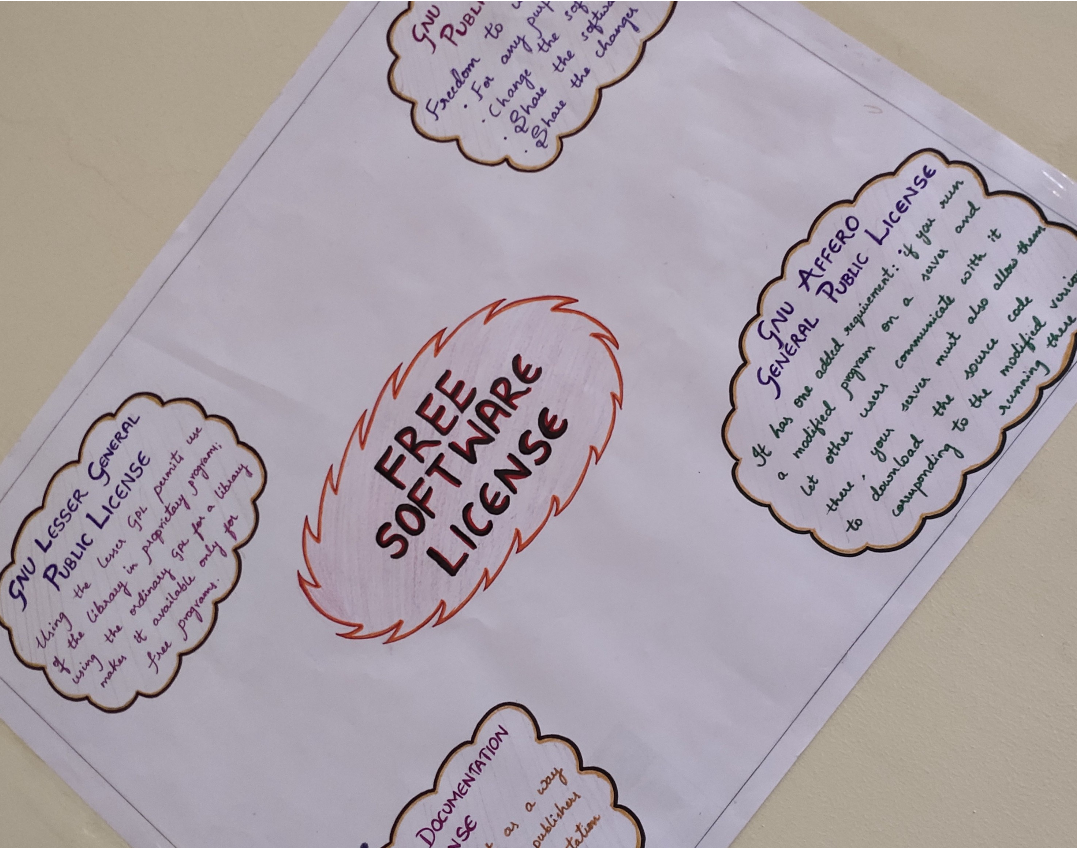 GNU
PUBLI
Freedom to
· For any purp
· Change the sof
· Share the softwa
· Share the changes
GNU AFFERO
GENERAL PUBLIC LICENSE
It has one added requirement: if you run
a modified program on a server and
let other users communicate with it
there, your server must also allow them
to download the source code
corresponding to the modified versio
running there
FREE
SOFTWARE
LICENSE
GNU LESSER GENERAL
PUBLIC LICENSE
Using the lesser GPL permits use
of the library in proprietary programs;
using the ordinary GPL for a library
makes it available only for
free programs.
DOCUMENTATION
NSE
as a way
publishers
tation